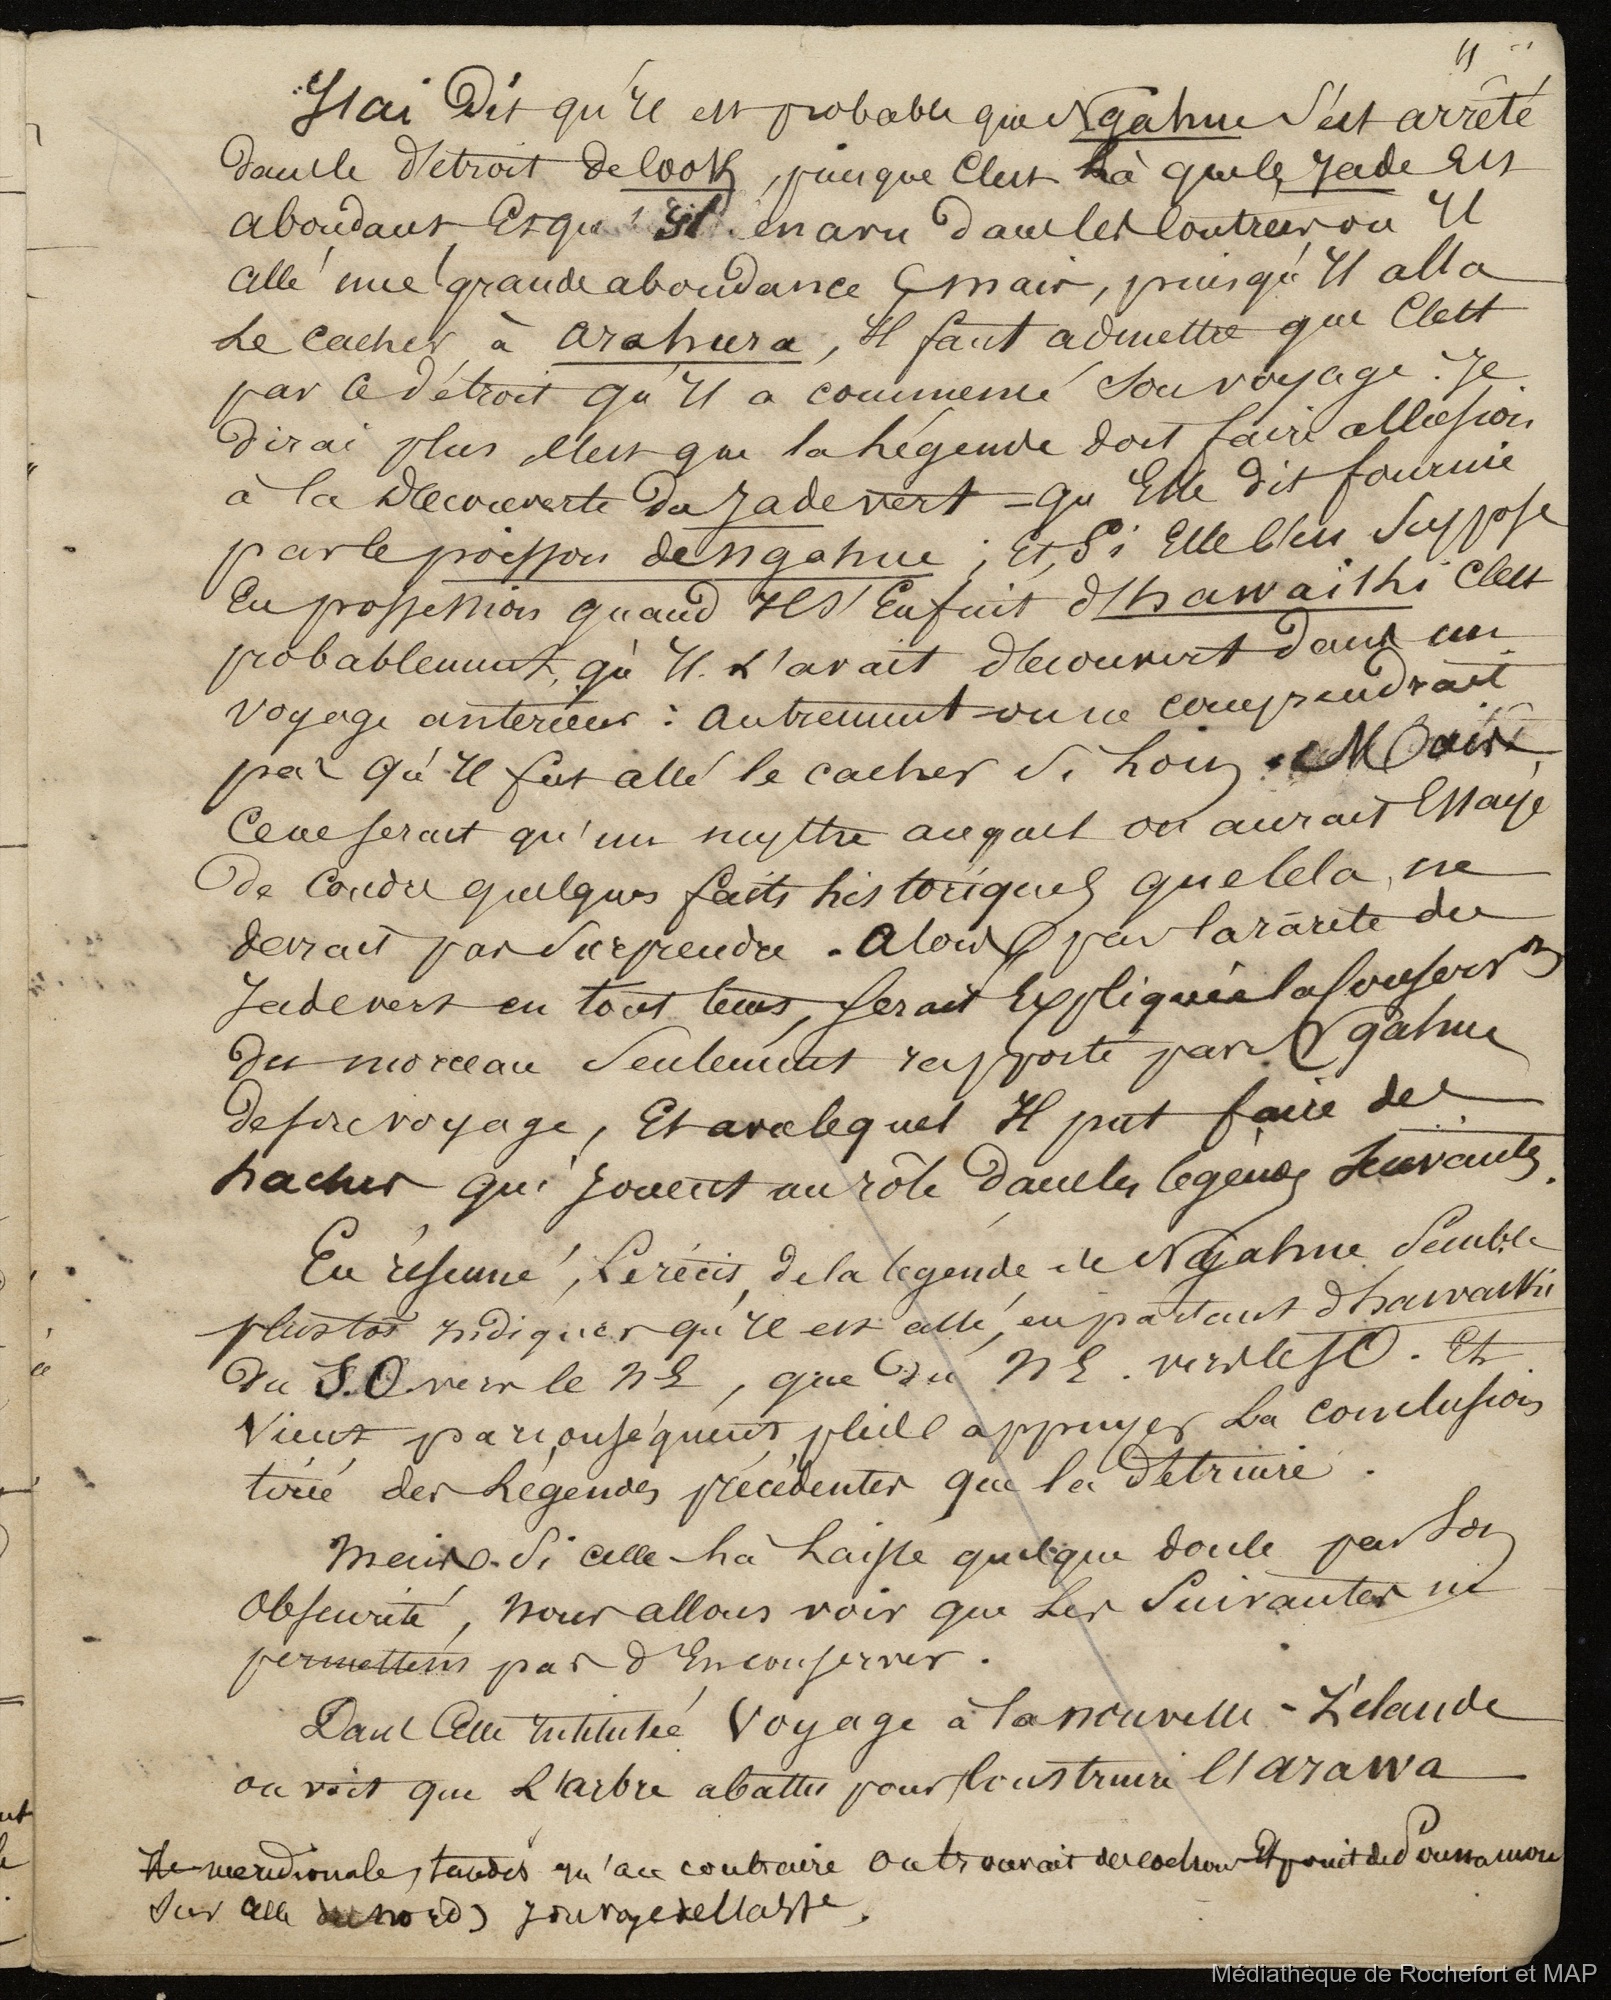 11
J'ai dit qu'il est probable que Ngahue s'est arrêté
dans le détroit de Cook, puisque c'est là que le jade est
abondant et qu'il en a vu dans les contrées où il
allé une grande abondance ; mais, puisqu'il alla
le cacher à Arahura, il faut admettre que c'est
par ce détroit qu'il a commencé son voyage. Je
dirai plus, c'est que la légende doit faire allusion
à la découverte du jade vert = qu'elle dit fournie
par le poisson de Ngahue ; et, si elle l'en suppose
en possession quand il s'enfuit d'hawaïki c'est
probablement, qu'il l'avait découvert dans un
voyage antérieur : autrement on ne comprendrait
pas qu'il fut allé le cacher si loin. Mais
ce ne serait qu'un mythe auquel on aurait essayé
de coudre quelques faits historiques que cela ne
devrait pas surprendre. Alors par la rareté du
jade vert en tout tems, serait expliquée la
du morceau seulement rapporté par Ngahue
de son voyage, et avec lequel il put faire des
haches qui jouent un rôle dans les légendes suivantes.
En résumé, le récit de la légende de Ngahue semble
plustôt indiquer qu'il est allé, en partant d'hawaïki
du S.O. vers le NE, que du NE. vers le SO. Et
vient par conséquent plutôt appuyer la conclusion
tirée des légendes précédentes que la détruire.
Mais si celle-là laisse quelque doute par son
obscurité, nous allons voir que les suivantes ne
permettent pas d'en conserver.
Dans celle intitulée Voyage à la nouvelle-Zélande
on voit que l'arbre abattu pour construire l'arawa
Ile méridionale, tandis qu'au contraire on trouvait des cochons et point de Pounamou
sur celle du nord)
Médiathèque de Rochefort et MAP